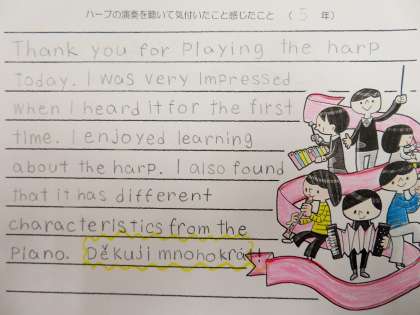 ハープの演奏を聴いて気付いたこと感じたこと （ 5 年）
Thank you for playing the harp
today. I was very impressed
when I heard it for the first
time. I enjoyed learning
about the harp. I also found
that it has different
characteristics from the
piano. Děkuji mnohokrát!